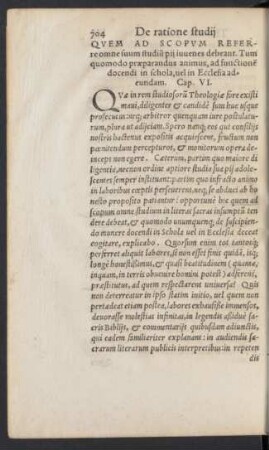 704 De ratione studij
QVEM AD SCOPVM REFER-
re omne suum studiũ pij iuuenes debeant. Tum
quomodo præparandus animus, ad functionẽ
docendi in schola, uel in Ecclesia ad-
eundam. Cap. VI.
QVæ in rem studiosorũ Theologiæ fore existi
maui, diligenter & candidè sum huc usque
prosecutus: neq; arbitror quenquam iure postula-
turum, plura ut adijciam. Spero nanq; eos qui consilijs
nostris hactenus expositis acquiescere, fructum non
pœnitendum percepturos, et monitorum opera de-
inceps non egere. Cæterum, partim quo maiore di
ligentia, necnon ordine aptiore studia sua pij adole-
scentes semper instituant: partim quo infracto animo
in laboribus cœptis perseuerent, neq; se abduci ab ho
nesto proposito patiantur: opportunè hic quem ad
scopum omne studium in literas sacras insumptũ ten
dere debeat, & quomodo unumquemq; de suscipien-
do munere docendi in Schola uel in Ecclesia deceat
cogitare, explicabo. Quorsum enim tot tantosq;
perferret aliquis labores, si non esset finis quidã, isq;
longè honestissimus, & quasi beatitudinem (quanta,
inquam, in terris obuenire homini potest) adferens,
præstitutus, ad quem respectarent uniuersa? Quis
non deterreatur in ipso statim initio, uel quem non
pertædeat etiam postea, labores exhausisse immensos,
deuorasse molestias infinitas, in legendis assiduè sa-
cris Biblijs, & commentarijs quibusdam adiunctis,
qui eadem familiariter explanant: in audiendis sa-
crarum literarum publicis interpretibus: in repeten
dis